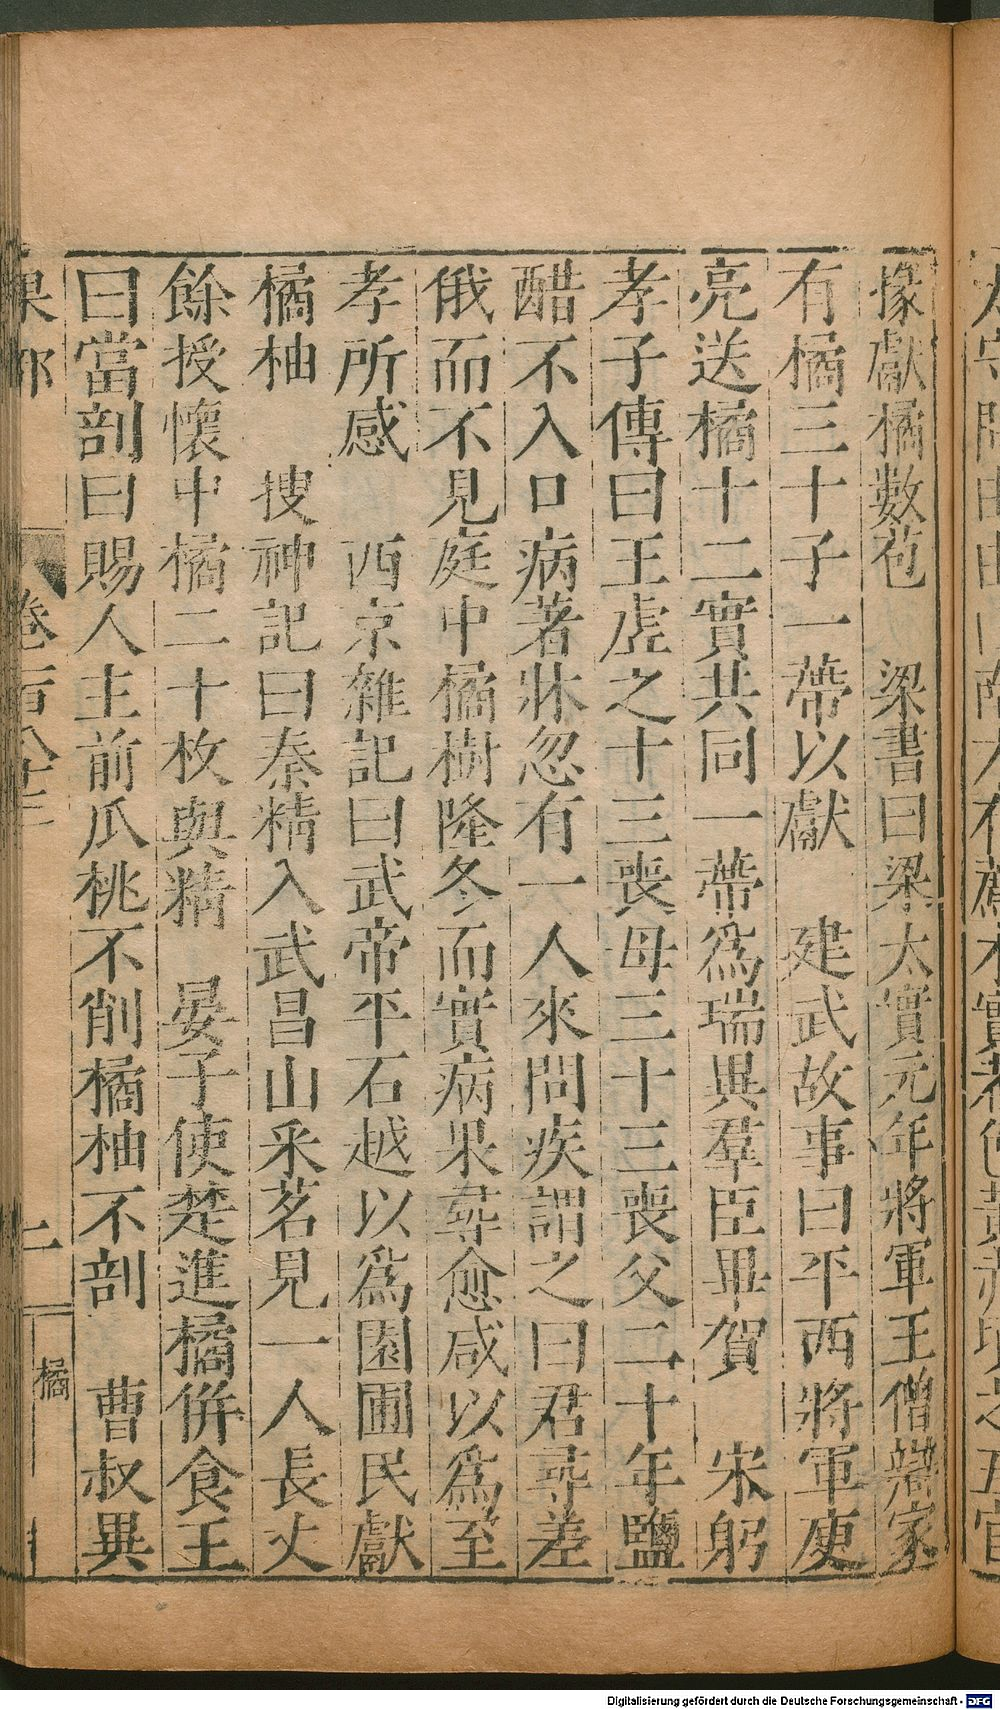 掾獻橘數苞　梁書曰梁太實元年將軍王僧辯家
有橘三十子一蔕以獻　建武故事曰平西將軍庾
亮送橘十二實共同一蔕爲瑞異羣臣畢賀　宋躬
孝子傳曰王虛之十三喪母三十三喪父二十年鹽
醋不入口病著牀忽有一人來問疾謂之曰君尋差
俄而不見庭中橘樹隆冬而實病果尋愈咸以爲至
孝所感　西京雜記曰武帝平石越以爲園圃民獻
橘柚　搜神記曰秦精入武昌山采茗見一人長丈
餘授懷中橘二十枚與精　晏子使楚進橘併食王
曰當剖曰賜人主前瓜桃不削橘柚不剖　曹叔異
果部　卷一百八十三　二　橘
Digitalisierung gefördert durch die Deutsche Forschungsgemeinschaft - DFG